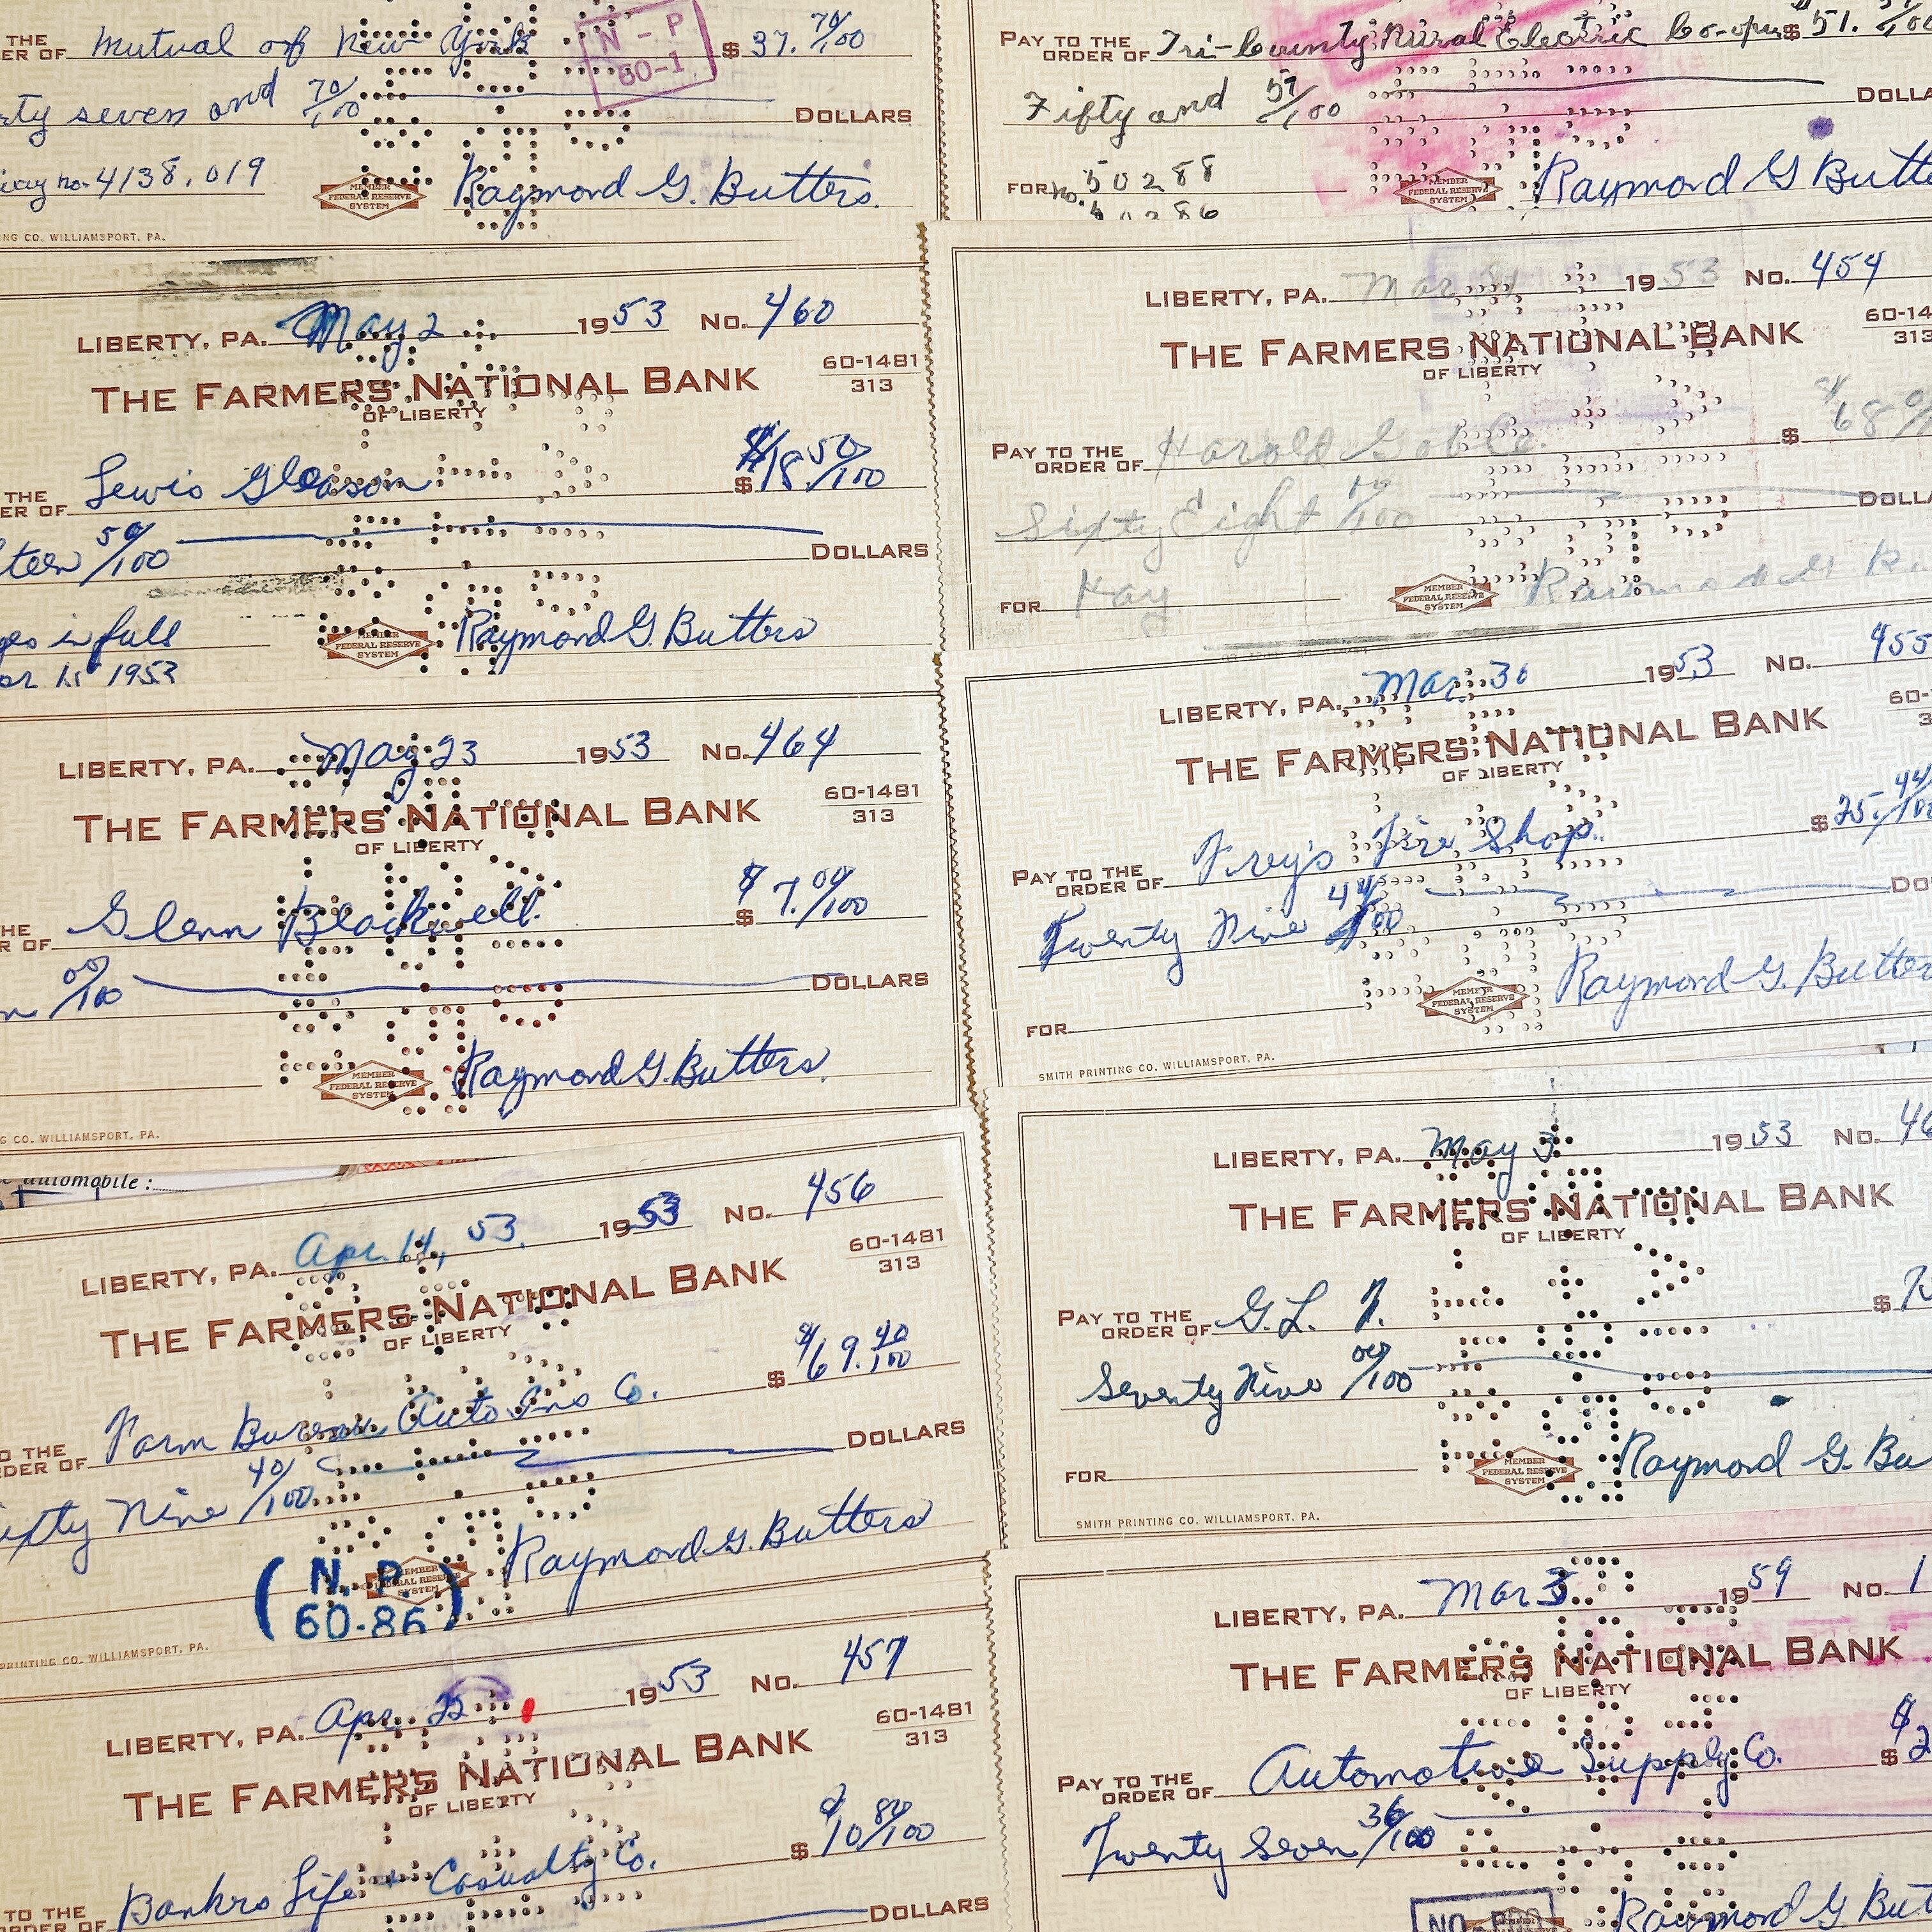 THE
ER OF Mutual of New York $ 37. 70/100
rty seven and 70/100 DOLLARS
no. 4138,019 Raymond G. Butters.
N-P
60-1
MEMBER
FEDERAL RESERVE
SYSTEM
NG CO. WILLIAMSPORT, PA.
LIBERTY, PA. May 2 1953 No. 460
THE FARMERS NATIONAL BANK 60-1481
OF LIBERTY 313
THE
ER OF Lewis Gleason $ $18.50/100
teen 50/100 DOLLARS
ges in full Raymond G. Butters
1953
MEMBER
FEDERAL RESERVE
SYSTEM
LIBERTY, PA. May 23 1953 No. 464
THE FARMERS NATIONAL BANK 60-1481
OF LIBERTY 313
HE
R OF Glenn Blackwell $ $7.00/100
n 00/100 DOLLARS
Raymond G. Butters
MEMBER
FEDERAL RESERVE
SYSTEM
G CO. WILLIAMSPORT, PA.
automobile:
LIBERTY, PA. Apr. 14, 53. 1953 No. 456
THE FARMERS NATIONAL BANK 60-1481
OF LIBERTY 313
O THE
RDER OF Farm Bureau Auto Ins Co. $ $69.40/100
ixty Nine 40/100 DOLLARS
Raymond G. Butters
(N.P.
60-86)
MEMBER
FEDERAL RESERVE
SYSTEM
PRINTING CO. WILLIAMSPORT, PA.
LIBERTY, PA. Apr. 22 1953 No. 457
THE FARMERS NATIONAL BANK 60-1481
OF LIBERTY 313
TO THE
ORDER OF Bankrs Life + Casualty Co. $ $10 80/100
DOLLARS
PAY TO THE
ORDER OF Tri-County Rural Electric Co-op $ 51.
Fifty and 57/100 DOLLA
FOR No. 50288
40286
Raymond G Butte
MEMBER
FEDERAL RESERVE
SYSTEM
LIBERTY, PA. Mar 1953 No. 454
THE FARMERS NATIONAL BANK 60-14
OF LIBERTY 313
PAY TO THE
ORDER OF Harold $ $68
Sixty Eight /100 DOLLA
FOR Hay Raymond G
MEMBER
FEDERAL RESERVE
SYSTEM
LIBERTY, PA. Mar. 30 1953 No. 455
THE FARMERS NATIONAL BANK 60-
OF LIBERTY 3
PAY TO THE
ORDER OF Frey's Fire Shop. $ 25.44/100
Twenty Nine 44/100 DO
FOR Raymond G. Butter
MEMBER
FEDERAL RESERVE
SYSTEM
SMITH PRINTING CO. WILLIAMSPORT, PA.
LIBERTY, PA. May 3 1953 No. 46
THE FARMERS NATIONAL BANK
OF LIBERTY
PAY TO THE
ORDER OF G.L.F. $ 7
Seventy Nine 00/100
FOR Raymond G. Bu
MEMBER
FEDERAL RESERVE
SYSTEM
SMITH PRINTING CO. WILLIAMSPORT, PA.
LIBERTY, PA. Mar 3 1959 No. 1
THE FARMERS NATIONAL BANK
OF LIBERTY
PAY TO THE
ORDER OF Automotive Supply Co. $ $2
Twenty Seven 36/100
Raymond G But